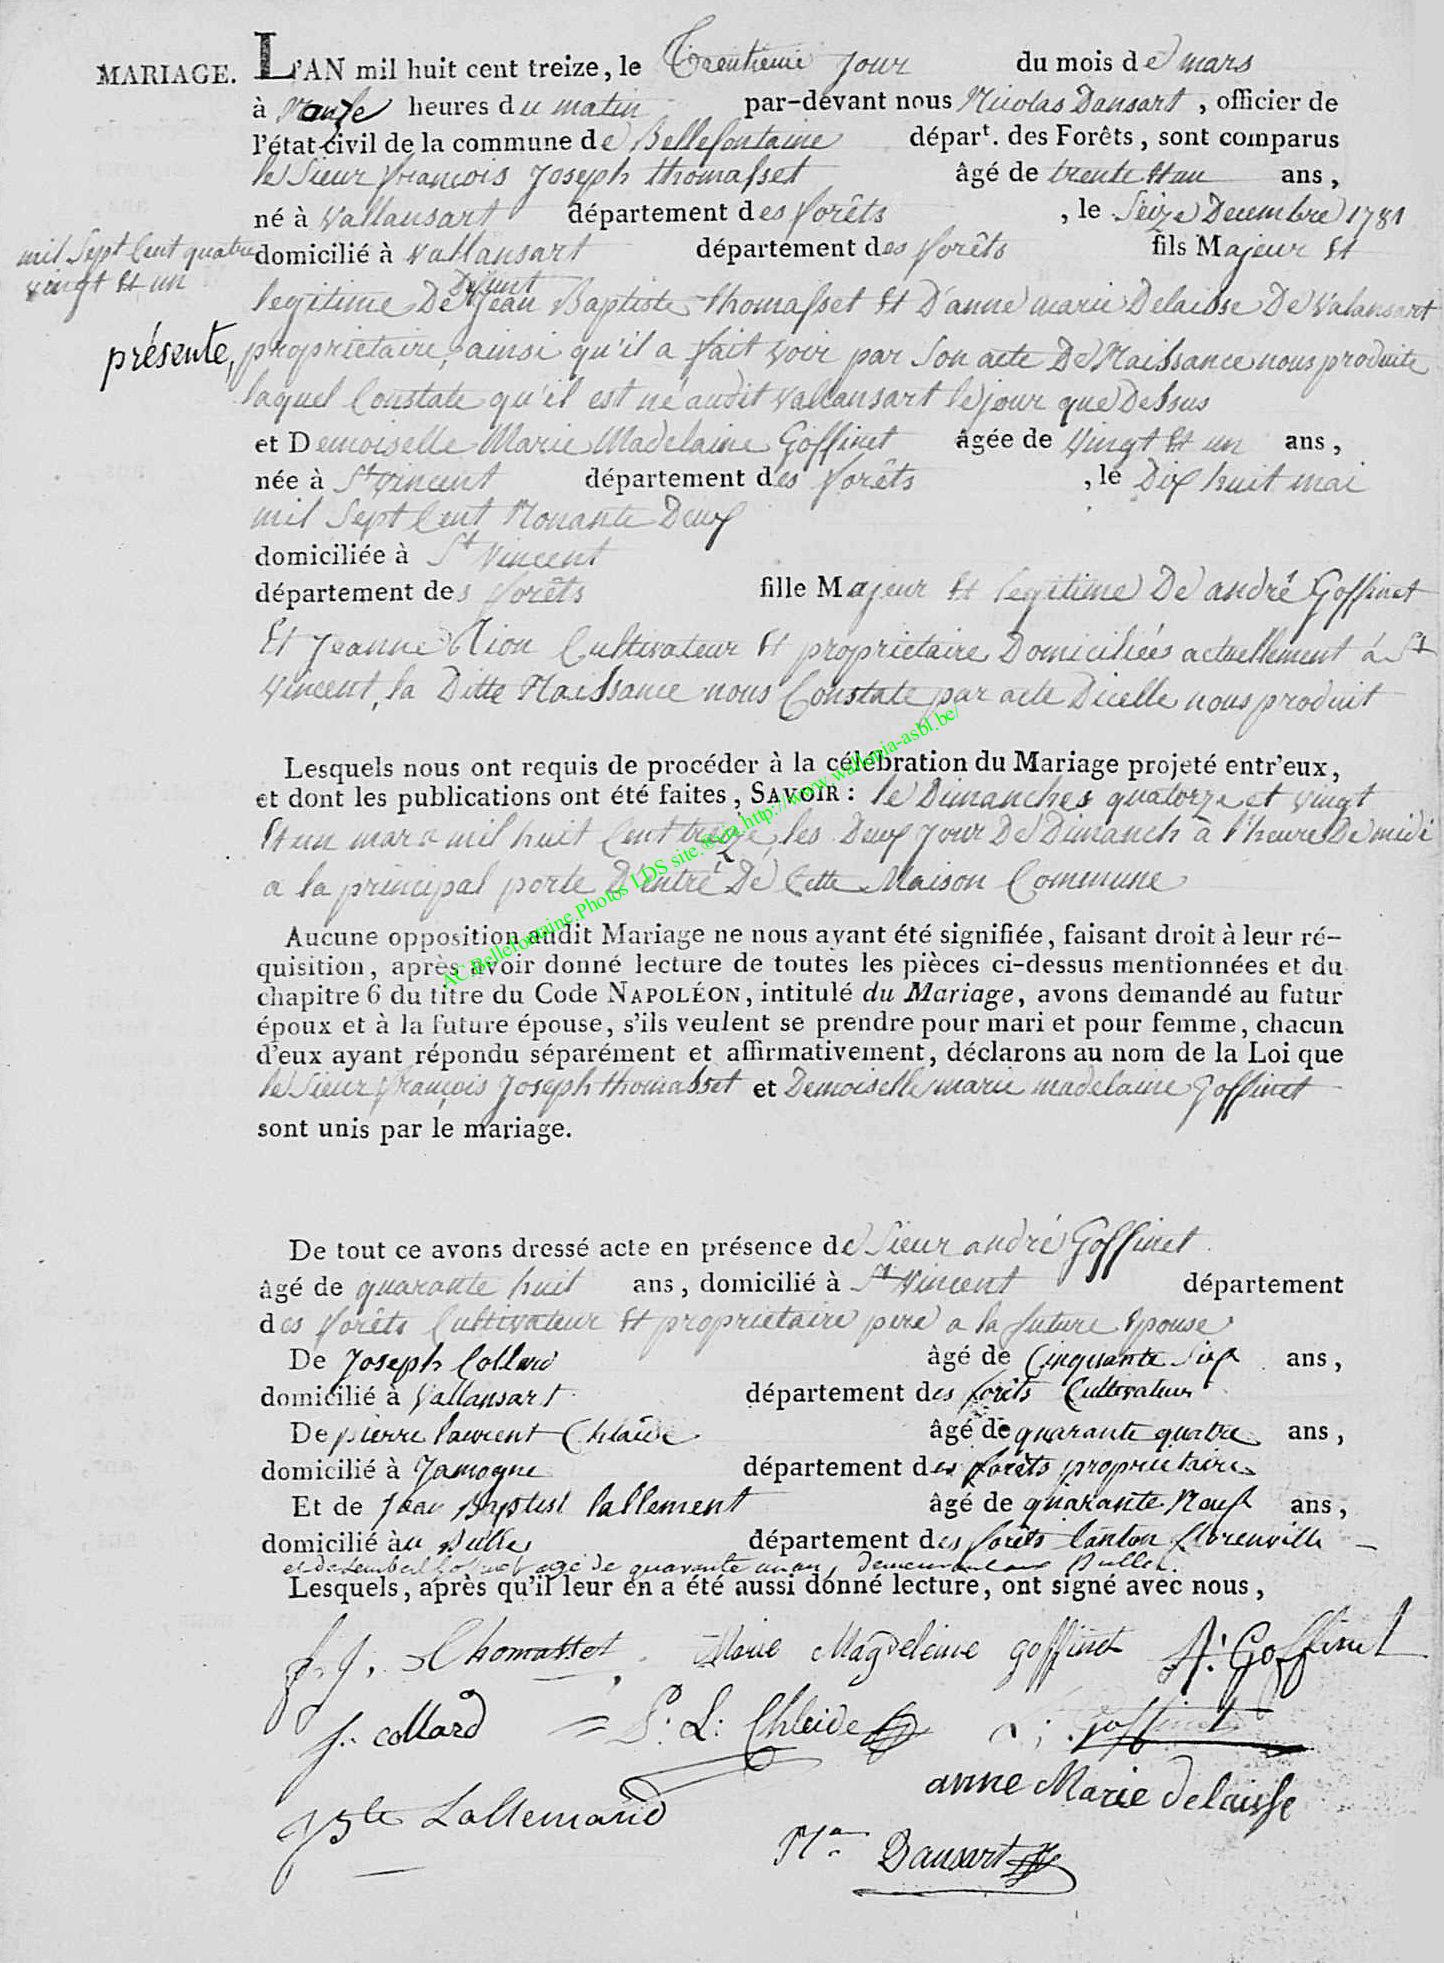 MARIAGE. L'AN mil huit cent treize, le Trentieme jour du mois de mars
à heures du matin par-devant nous Nicolas Dansart, officier de
l'état civil de la commune de Bellefontaine départ. des Forêts, sont comparus
le Sieur françois Joseph thomasset âgé de trente Et un ans,
né à Vallansart département des forêts, le Seize Decembre 1781
mil Sept Cent quatre vingt Et un
domicilié à Vallansart département des forêts fils Majeur Et
Defunt
legitime De Jean Baptiste thomasset Et D'anne marie Delaisse De Valansart
présente,
proprietaire, ainsi qu'il a fait voir par Son acte De Naissance nous produite
laquel Constate qu'il est né audit Vallansart le jour que Dessus
et Demoiselle Marie Madelaine Goffinet âgée de Vingt Et un ans,
née à St Vincent département des forêts, le Dix huit mai
mil Sept Cent Nonante Deux
domiciliée à St Vincent
département des forêts fille Majeur Et legitime De andré Goffinet
Et Jeanne Cultivateur Et proprietaire Domiciliées actuellement à St
Vincent, la Ditte Naissance nous Constate par acte Dicelle nous produit
Lesquels nous ont requis de procéder à la célébration du Mariage projeté entr'eux,
et dont les publications ont été faites, SAVOIR: le Dimanches quatorze et vingt
Et un mars mil huit Cent treize, les Deux Jour De Dimanch à l'heure De midi
a la principal porte D'entré De Cette Maison Commune
Aucune opposition audit Mariage ne nous ayant été signifiée, faisant droit à leur ré-
quisition, après avoir donné lecture de toutes les pièces ci-dessus mentionnées et du
chapitre 6 du titre du Code NAPOLÉON, intitulé du Mariage, avons demandé au futur
époux et à la future épouse, s'ils veulent se prendre pour mari et pour femme, chacun
d'eux ayant répondu séparément et affirmativement, déclarons au nom de la Loi que
le Sieur françois Joseph thomasset et Demoiselle marie madelaine Goffinet
sont unis par le mariage.
De tout ce avons dressé acte en présence de Sieur andré Goffinet
âgé de quarante huit ans, domicilié à St Vincent département
des forêts Cultivateur Et proprietaire pere a la future Epouse
De Joseph Collard âgé de Cinquante Six ans,
domicilié à Vallansart département des forêts Cultivateur
De pierre laurent Chlaide âgé de quarante quatre ans,
domicilié à Jamogne département des forêts proprietaire
Et de Jean Baptist lallement âgé de quarante Neuf ans,
domicilié à département des forêts Canton florenville
agé de quarante un an,
Lesquels, après qu'il leur en a été aussi donné lecture, ont signé avec nous,
f. J. Thomasset Marie Magdeleine goffinet A: Goffinet
J. Collard P: L: Chleide L: goffinet
anne Marie delaisse
Jble Lallemand
Nas Dansart
AC Bellefontaine.Photos LDS site.©via http://www.wallonia-asbl.be/